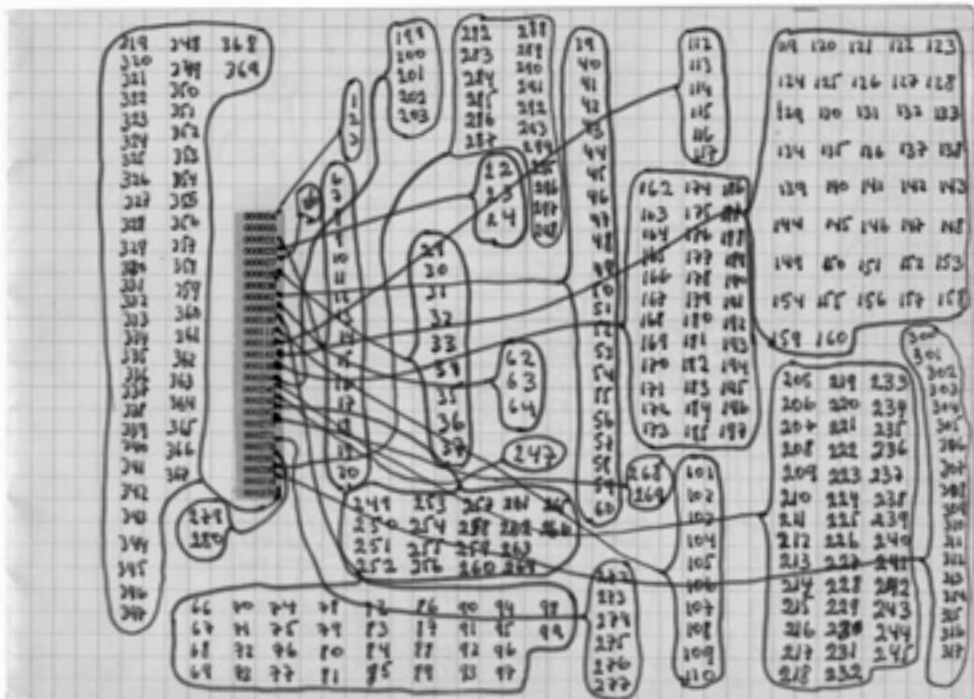 319 348 368
320 349 369
321 350
322 351
323 352
324 353
325 354
326 355
327 356
328 357
329 358
330 359
331 360
332 361
333 362
334 363
335 364
336 365
337 366
338 367
339
340
341
342
343
344
345
346
347
1
2
3
199
200
201
202
203
282 288
283 289
284 290
285 291
286 292
287 293
294
295
296
297
298
22
23
24
6
7
8
9
10
11
12
13
15
16
17
18
19
20
29
30
31
32
33
34
35
36
37
39
40
41
42
43
44
45
46
47
48
49
50
51
52
53
54
55
56
57
58
59
60
62
63
64
112
113
114
115
116
117
119 120 121 122 123
124 125 126 127 128
129 130 131 132 133
134 135 136 137 138
139 140 141 142 143
144 145 146 147 148
149 150 151 152 153
154 155 156 157 158
159 160
162 174 186
163 175 187
164 176 188
165 177 189
166 178 190
167 179 191
168 180 192
169 181 193
170 182 194
171 183 195
172 184 196
173 185 197
205 219 233
206 220 234
207 221 235
208 222 236
209 223 237
210 224 238
211 225 239
212 226 240
213 227 241
214 228 242
215 229 243
216 230 244
217 231 245
218 232
300
301
302
303
304
305
306
307
308
309
310
311
312
313
314
315
316
317
247
268
269
101
102
103
104
105
106
107
108
109
110
249 253 257 261 265
250 254 258 262 266
251 255 259 263
252 256 260 264
279
280
272
273
274
275
276
277
66 70 74 78 82 86 90 94 98
67 71 75 79 83 87 91 95 99
68 72 76 80 84 88 92 96
69 73 77 81 85 89 93 97